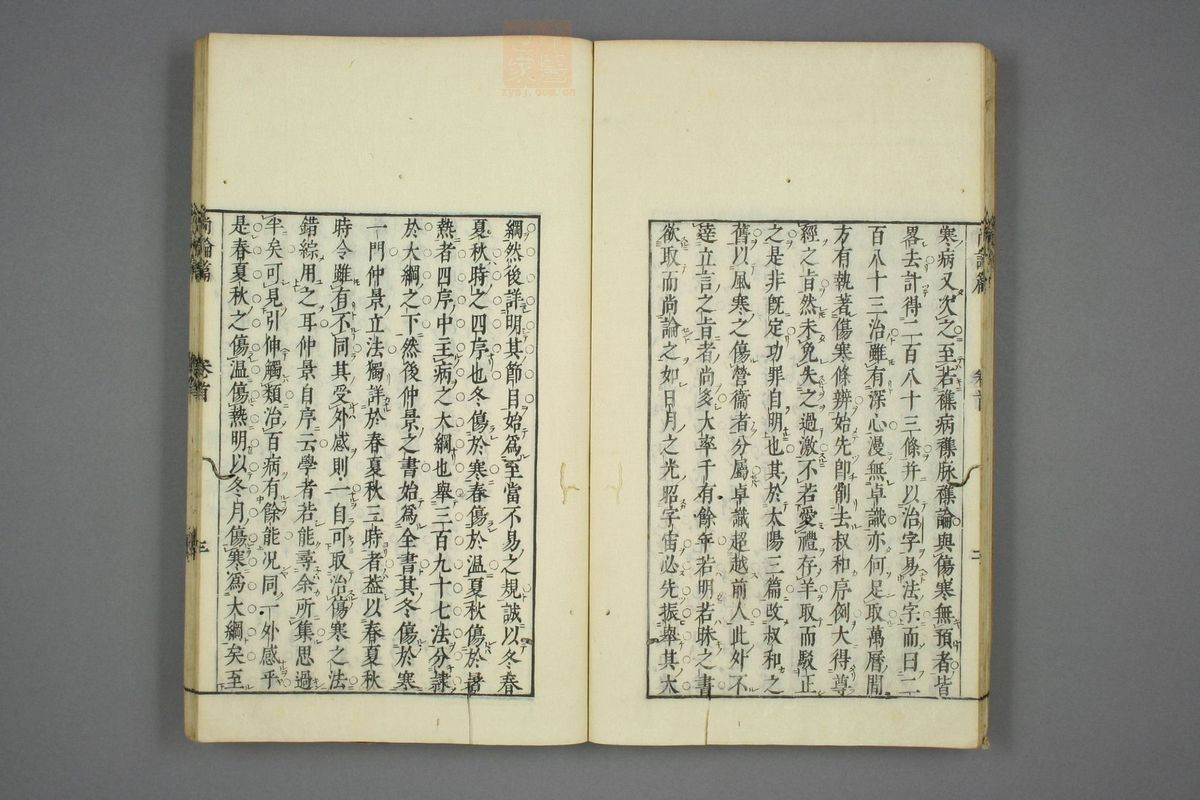 寒病又次之至若雜病雜脉雜論與傷寒無預者皆
畧去計得二百八十三條并以治字易法字而曰二
百八十三治雖有深心漫無卓識亦何足取萬曆間
方有執著傷寒條辨始先即削去叔和序例大得尊
經之旨然未免失之過激不若愛禮存羊取而駁正
之是非既定功罪自明也其於太陽三篇改叔和之
舊以風寒之傷營衞者分屬卓識超越前人此外不
達立言之旨者尚多大率千有餘年若明若昧之書
欲取而尚論之如日月之光昭宇宙必先振舉其大
綱然後詳明其節目始為至當不易之規誠以冬春
夏秋時之四序也冬傷於寒春傷於温夏秋傷於暑
熱者四序中主病之大綱也舉三百九十七法分隸
於大綱之下然後仲景之書始為全書其冬傷於寒
一門仲景立法獨詳於春夏秋三時者葢以春夏秋
時令雖有不同其受外感則一自可取治傷寒之法
錯綜用之耳仲景自序云學者若能尋余所集思過
半矣可見引伸觸類治百病有餘能况同一外感乎
是春夏秋之傷温傷熱明以冬月傷寒為大綱矣至
尚論篇
卷首
二
尚論篇
卷首
三
zysj.com.cn